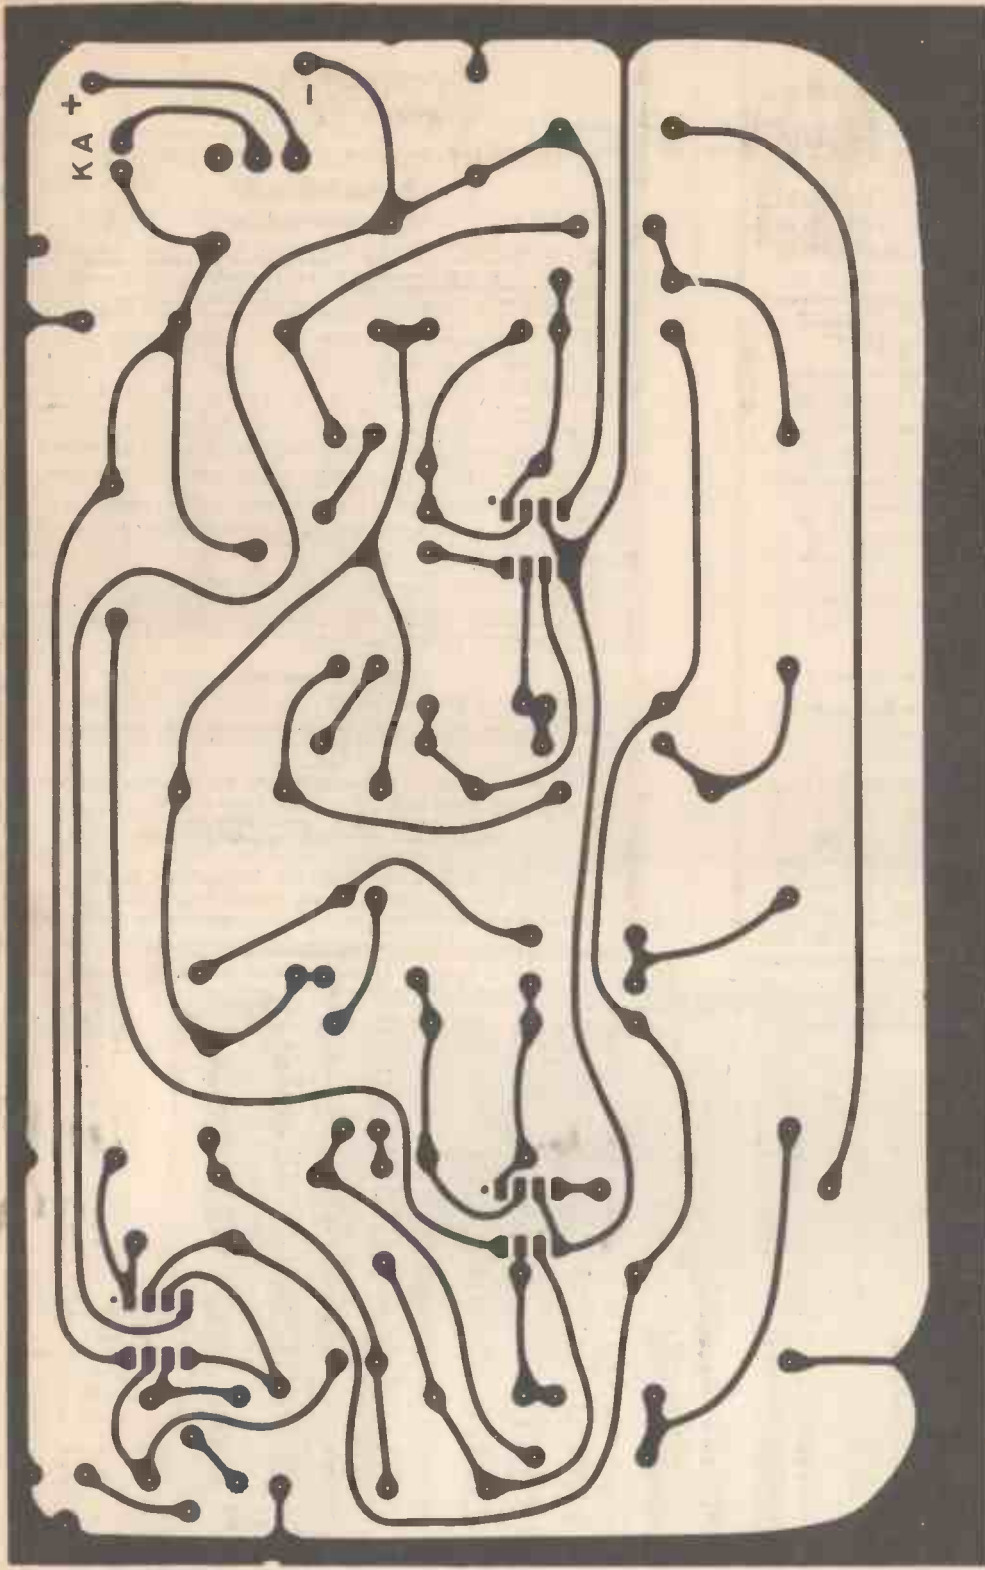 +
K A
-